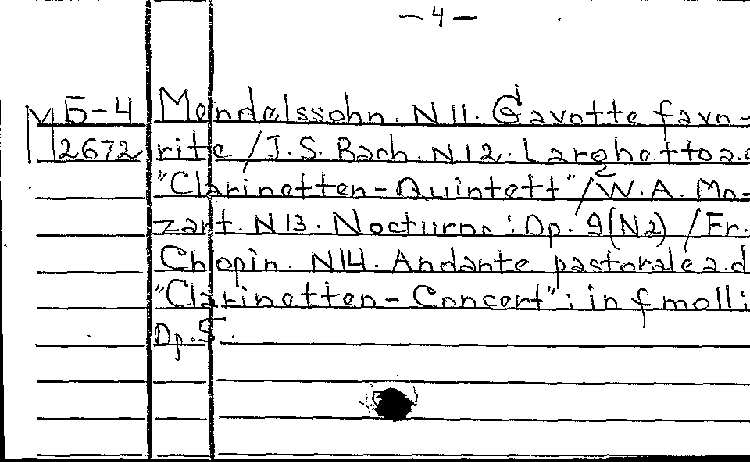 — 4 —
М Б-4 Mendelssohn. N 11. Gavotte favo-
12672 rite / J. S. Bach. N 12. Larghetto a. d
"Clarinetten-Quintett" / W. A. Mo-
zart. N 13. Nocturne : Op. 9 (N2) / Fr.
Chopin. N 14. Andante pastorale a. d
"Clarinetten-Concert" : in f moll :
Op. 5.